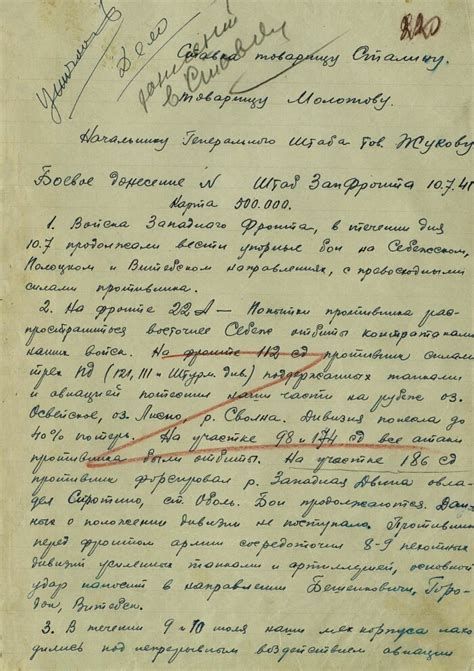 220
Дело
донесений
в Ставку
Ставка товарищу Сталину.
товарищу Молотову.
Начальнику Генерального Штаба тов. Жукову
Боевое донесение N Штаб Запфронта 10.7.41
Карта 500.000.
1. Войска Западного Фронта, в течении дня
10.7 продолжали вести упорные бои на Себежском,
Полоцком и Витебском направлениях, с превосходными
силами противника.
2. На фронте 22А — Попытки противника рас-
пространиться восточнее Себеж отбиты контратаками
наших войск. На фронте 112 сд противник силами
трех пд (121, 111 и Штурм. див.) поддержанных танками
и авиацией потеснил наши части на рубеже оз.
Освейское, оз. Лисно, р. Сволна. Дивизия понесла до
40% потерь. На участке 98 и 174 сд все атаки
противника были отбиты. На участке 186 сд
противник форсировал р. Западная Двина овла-
дел Сиротино, ст. Оболь. Бои продолжаются. Дан-
ных о положении дивизии не поступало. Противник
перед фронтом армии сосредоточил 8-9 пехотных
дивизий усиленных танками и артиллерией, основной
удар наносит в направлении Бешенковичи, Горо-
док, Витебск.
3. В течении 9 и 10 июля наши мех корпуса нахо-
дились под непрерывным воздействием авиации